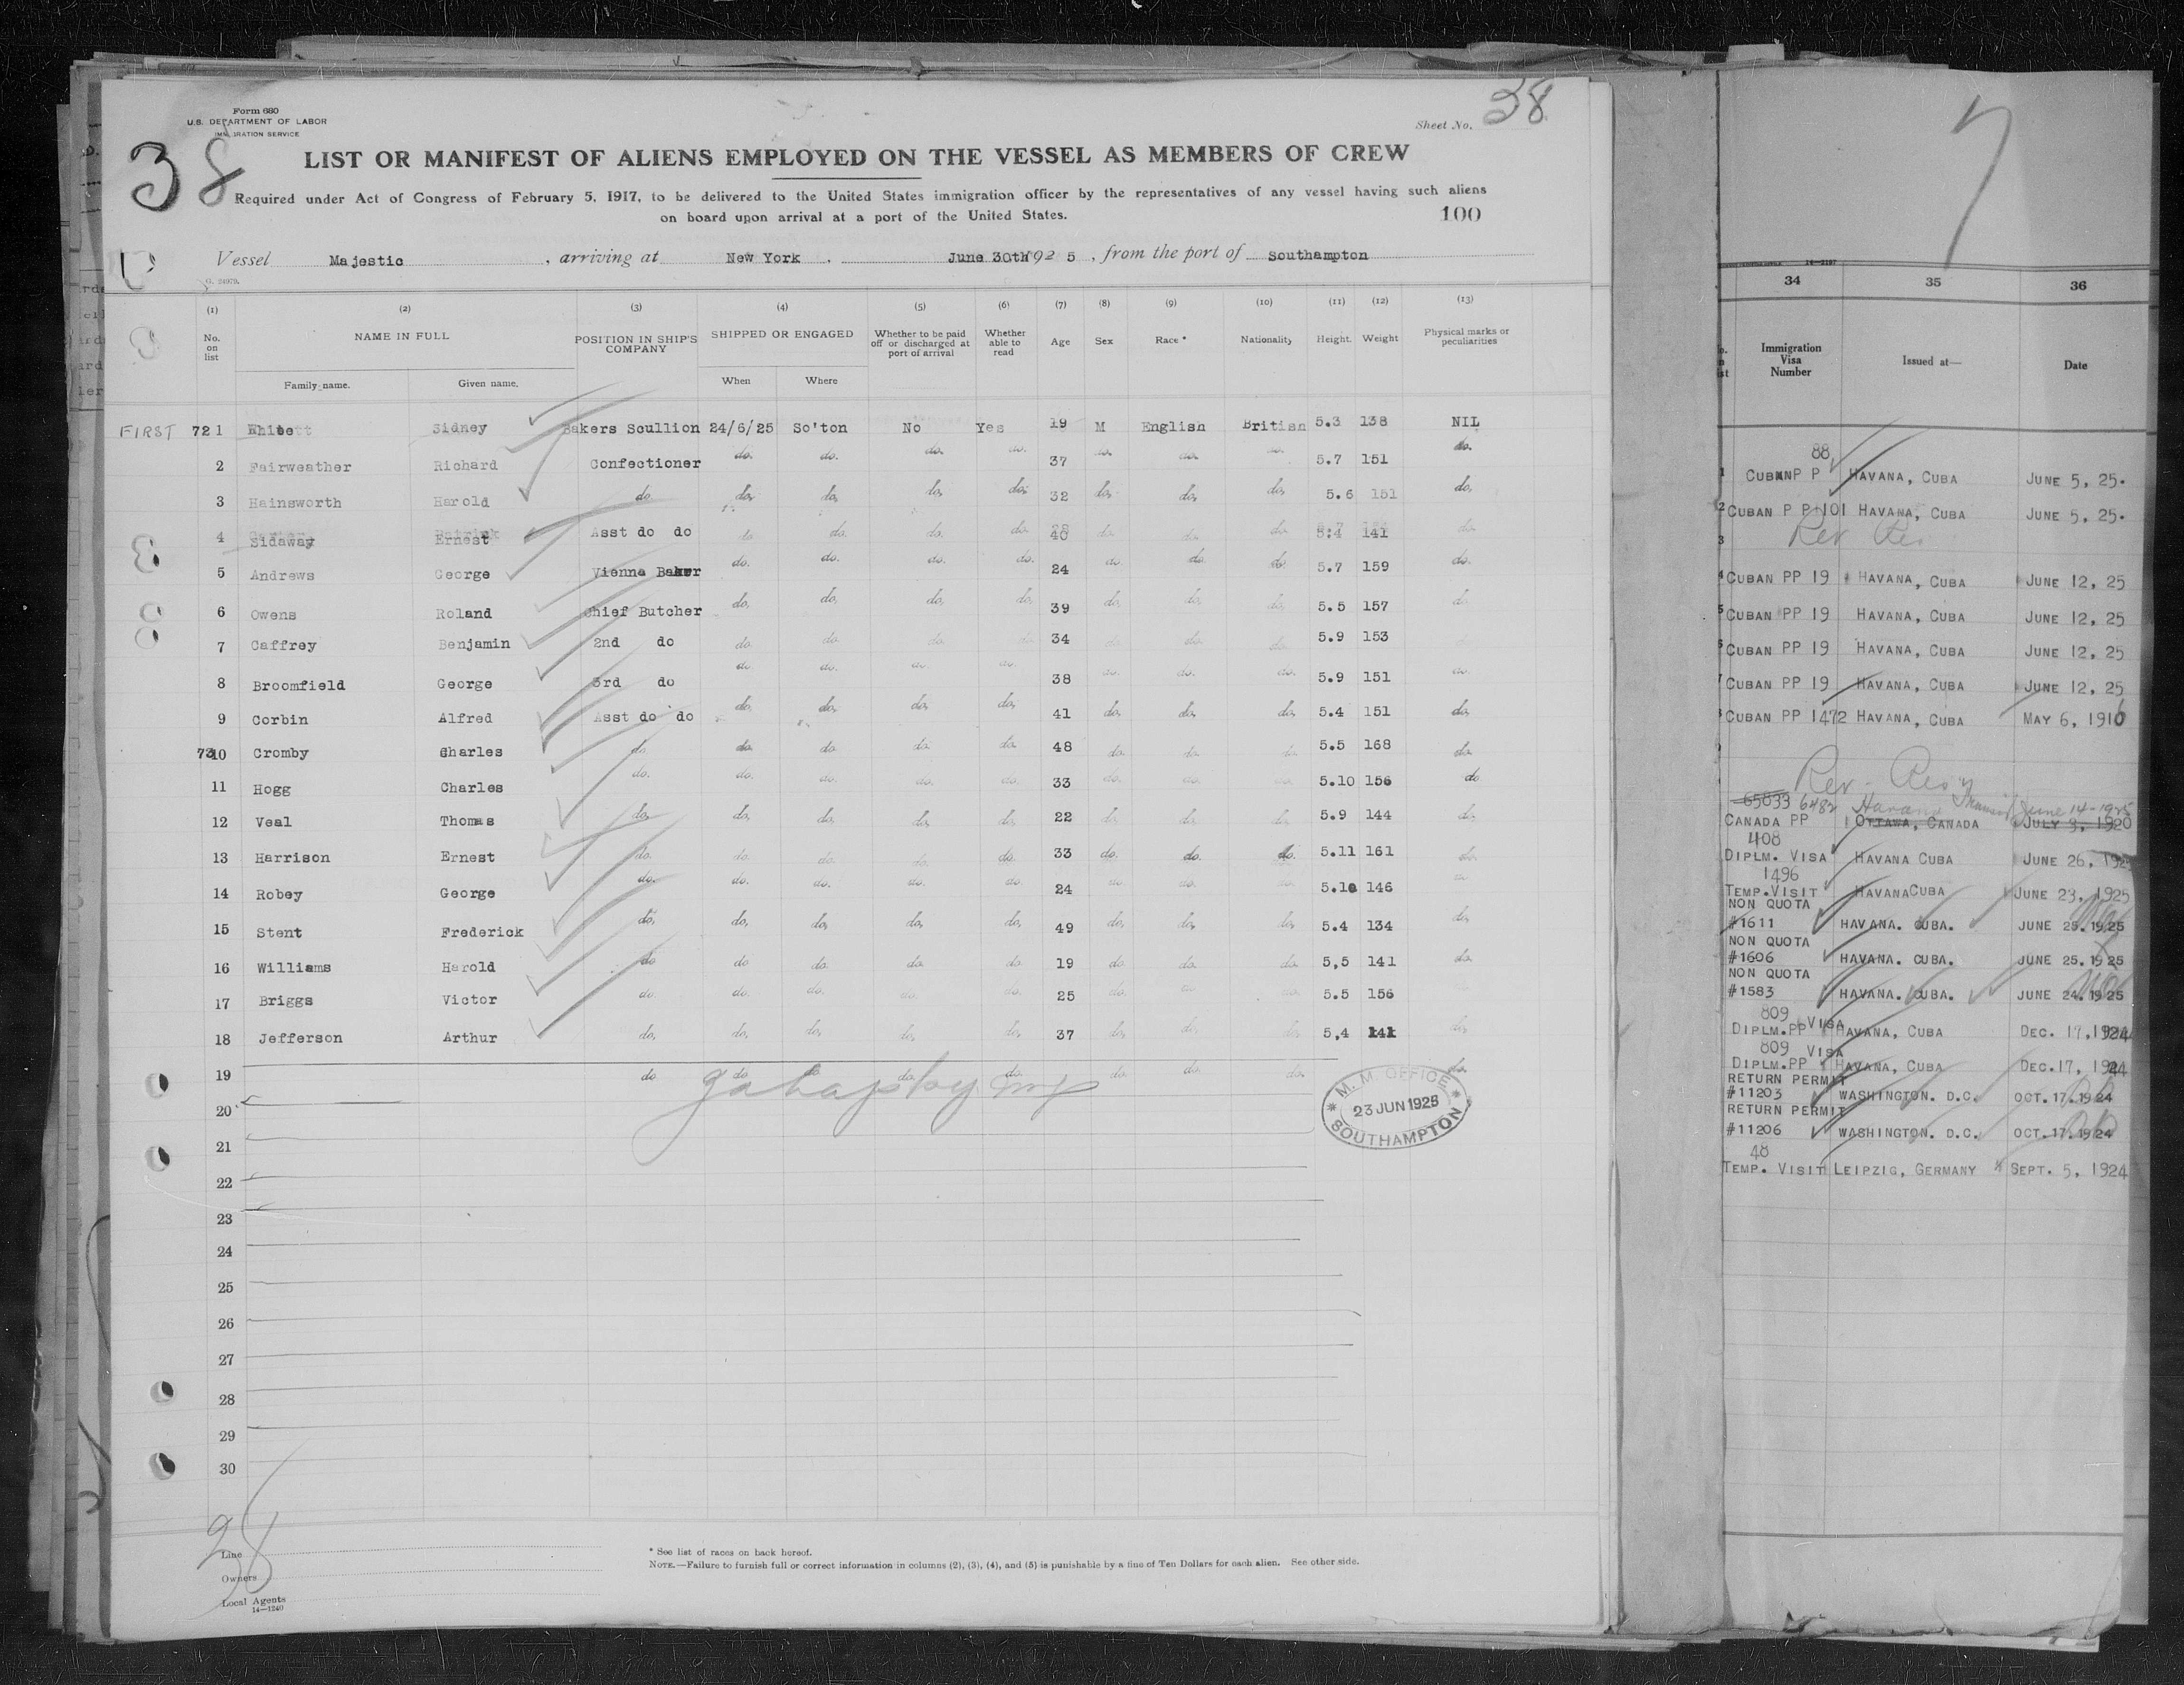 Form 680
U.S. DEPARTMENT OF LABOR
IMMIGRATION SERVICE
38
Sheet No. 38
LIST OR MANIFEST OF ALIENS EMPLOYED ON THE VESSEL AS MEMBERS OF CREW
Required under Act of Congress of February 5, 1917, to be delivered to the United States immigration officer by the representatives of any vessel having such aliens
on board upon arrival at a port of the United States.
100
Vessel Majestic , arriving at New York , June 30th 192 5 , from the port of Southampton
(1) (2) (3) (4) (5) (6) (7) (8) (9) (10) (11) (12) (13)
No. on list NAME IN FULL POSITION IN SHIP'S COMPANY SHIPPED OR ENGAGED Whether to be paid off or discharged at port of arrival Whether able to read Age Sex Race * Nationality Height. Weight Physical marks or peculiarities
Family name. Given name. When Where
FIRST 72 1 Sidney Bakers Scullion 24/6/25 So'ton No Yes 19 M English British 5.3 138 NIL
2 Fairweather Richard Confectioner do. do. do. do. 37 do. do. do. 5.7 151 do.
3 Hainsworth Harold do do, do, do, do, 32 do, do, do, 5.6 151 do,
4 Sidaway Ernest Asst do do do do. do. do. 40 do. do. do. 5:4 141 do.
5 Andrews George Vienna Baker do. do. do. do. 24 do. do. do. 5.7 159 do.
6 Owens Roland Chief Butcher do, do, do, do, 39 do, do, do, 5.5 157 do
7 Caffrey Benjamin 2nd do do. do. do do. 34 do. do. do. 5.9 153
8 Broomfield George 3rd do do do. do. do. 38 do. do. do. 5.9 151 do.
9 Corbin Alfred Asst do do do, do, do, do, 41 do, do, do, 5.4 151 do,
73 10 Cromby Charles do. do. do do. do. 48 do. do. do. 5.5 168 do
11 Hogg Charles do. do. do. do. do. 33 do. do. do. 5.10 156 do
12 Veal Thomas do, do, do, do, do, 22 do, do, do, 5.9 144 do,
13 Harrison Ernest do. do. do. do. do. 33 do. do. do. 5.11 161 do.
14 Robey George do. do. do. do. do. 24 do do. do. 5.10 146 do
15 Stent Frederick do, do, do, do, do, 49 do, do, do, 5.4 134 do,
16 Williams Harold do do do. do. do 19 do. do. do. 5,5 141 do.
17 Briggs Victor do. do. do. do. do. 25 do. do. do. 5.5 156
18 Jefferson Arthur do, do, do, do, do, 37 do, do, do, 5,4 141 do,
19 do do do do. do. do do do. do.
M. M. OFFICE
23 JUN 1925
SOUTHAMPTON
20
21
22
23
24
25
26
27
28
29
30
38
Line
Owners
Local Agents
14—1240
* See list of races on back hereof.
NOTE.—Failure to furnish full or correct information in columns (2), (3), (4), and (5) is punishable by a fine of Ten Dollars for each alien. See other side.
7
34 35 36
Immigration Visa Number Issued at— Date
88
1 CUBAN P P HAVANA, CUBA JUNE 5, 25.
2 CUBAN P P 101 HAVANA, CUBA JUNE 5, 25.
3
4 CUBAN PP 19 HAVANA, CUBA JUNE 12, 25
5 CUBAN PP 19 HAVANA, CUBA JUNE 12, 25
6 CUBAN PP 19 HAVANA, CUBA JUNE 12, 25
7 CUBAN PP 19 HAVANA, CUBA JUNE 12, 25
CUBAN PP 1472 HAVANA, CUBA MAY 6, 1916
65833 6482 Havana June 14-1925
CANADA PP OTTAWA, CANADA JULY 3, 1920
408
DIPLM. VISA HAVANA CUBA JUNE 26, 1925
1496
TEMP. VISIT HAVANA CUBA JUNE 23, 1925
NON QUOTA
#1611 HAVANA. CUBA. JUNE 25. 1925
NON QUOTA
#1606 HAVANA. CUBA. JUNE 25. 1925
NON QUOTA
#1583 HAVANA. CUBA. JUNE 24. 1925
809
DIPLM. PP VISA HAVANA, CUBA DEC. 17, 1924
809
DIPLM. PP VISA HAVANA, CUBA DEC. 17, 1924
RETURN PERMIT
#11203 WASHINGTON. D.C. OCT. 17. 1924
RETURN PERMIT
#11206 WASHINGTON. D.C. OCT. 17. 1924
48
TEMP. VISIT LEIPZIG, GERMANY SEPT. 5, 1924